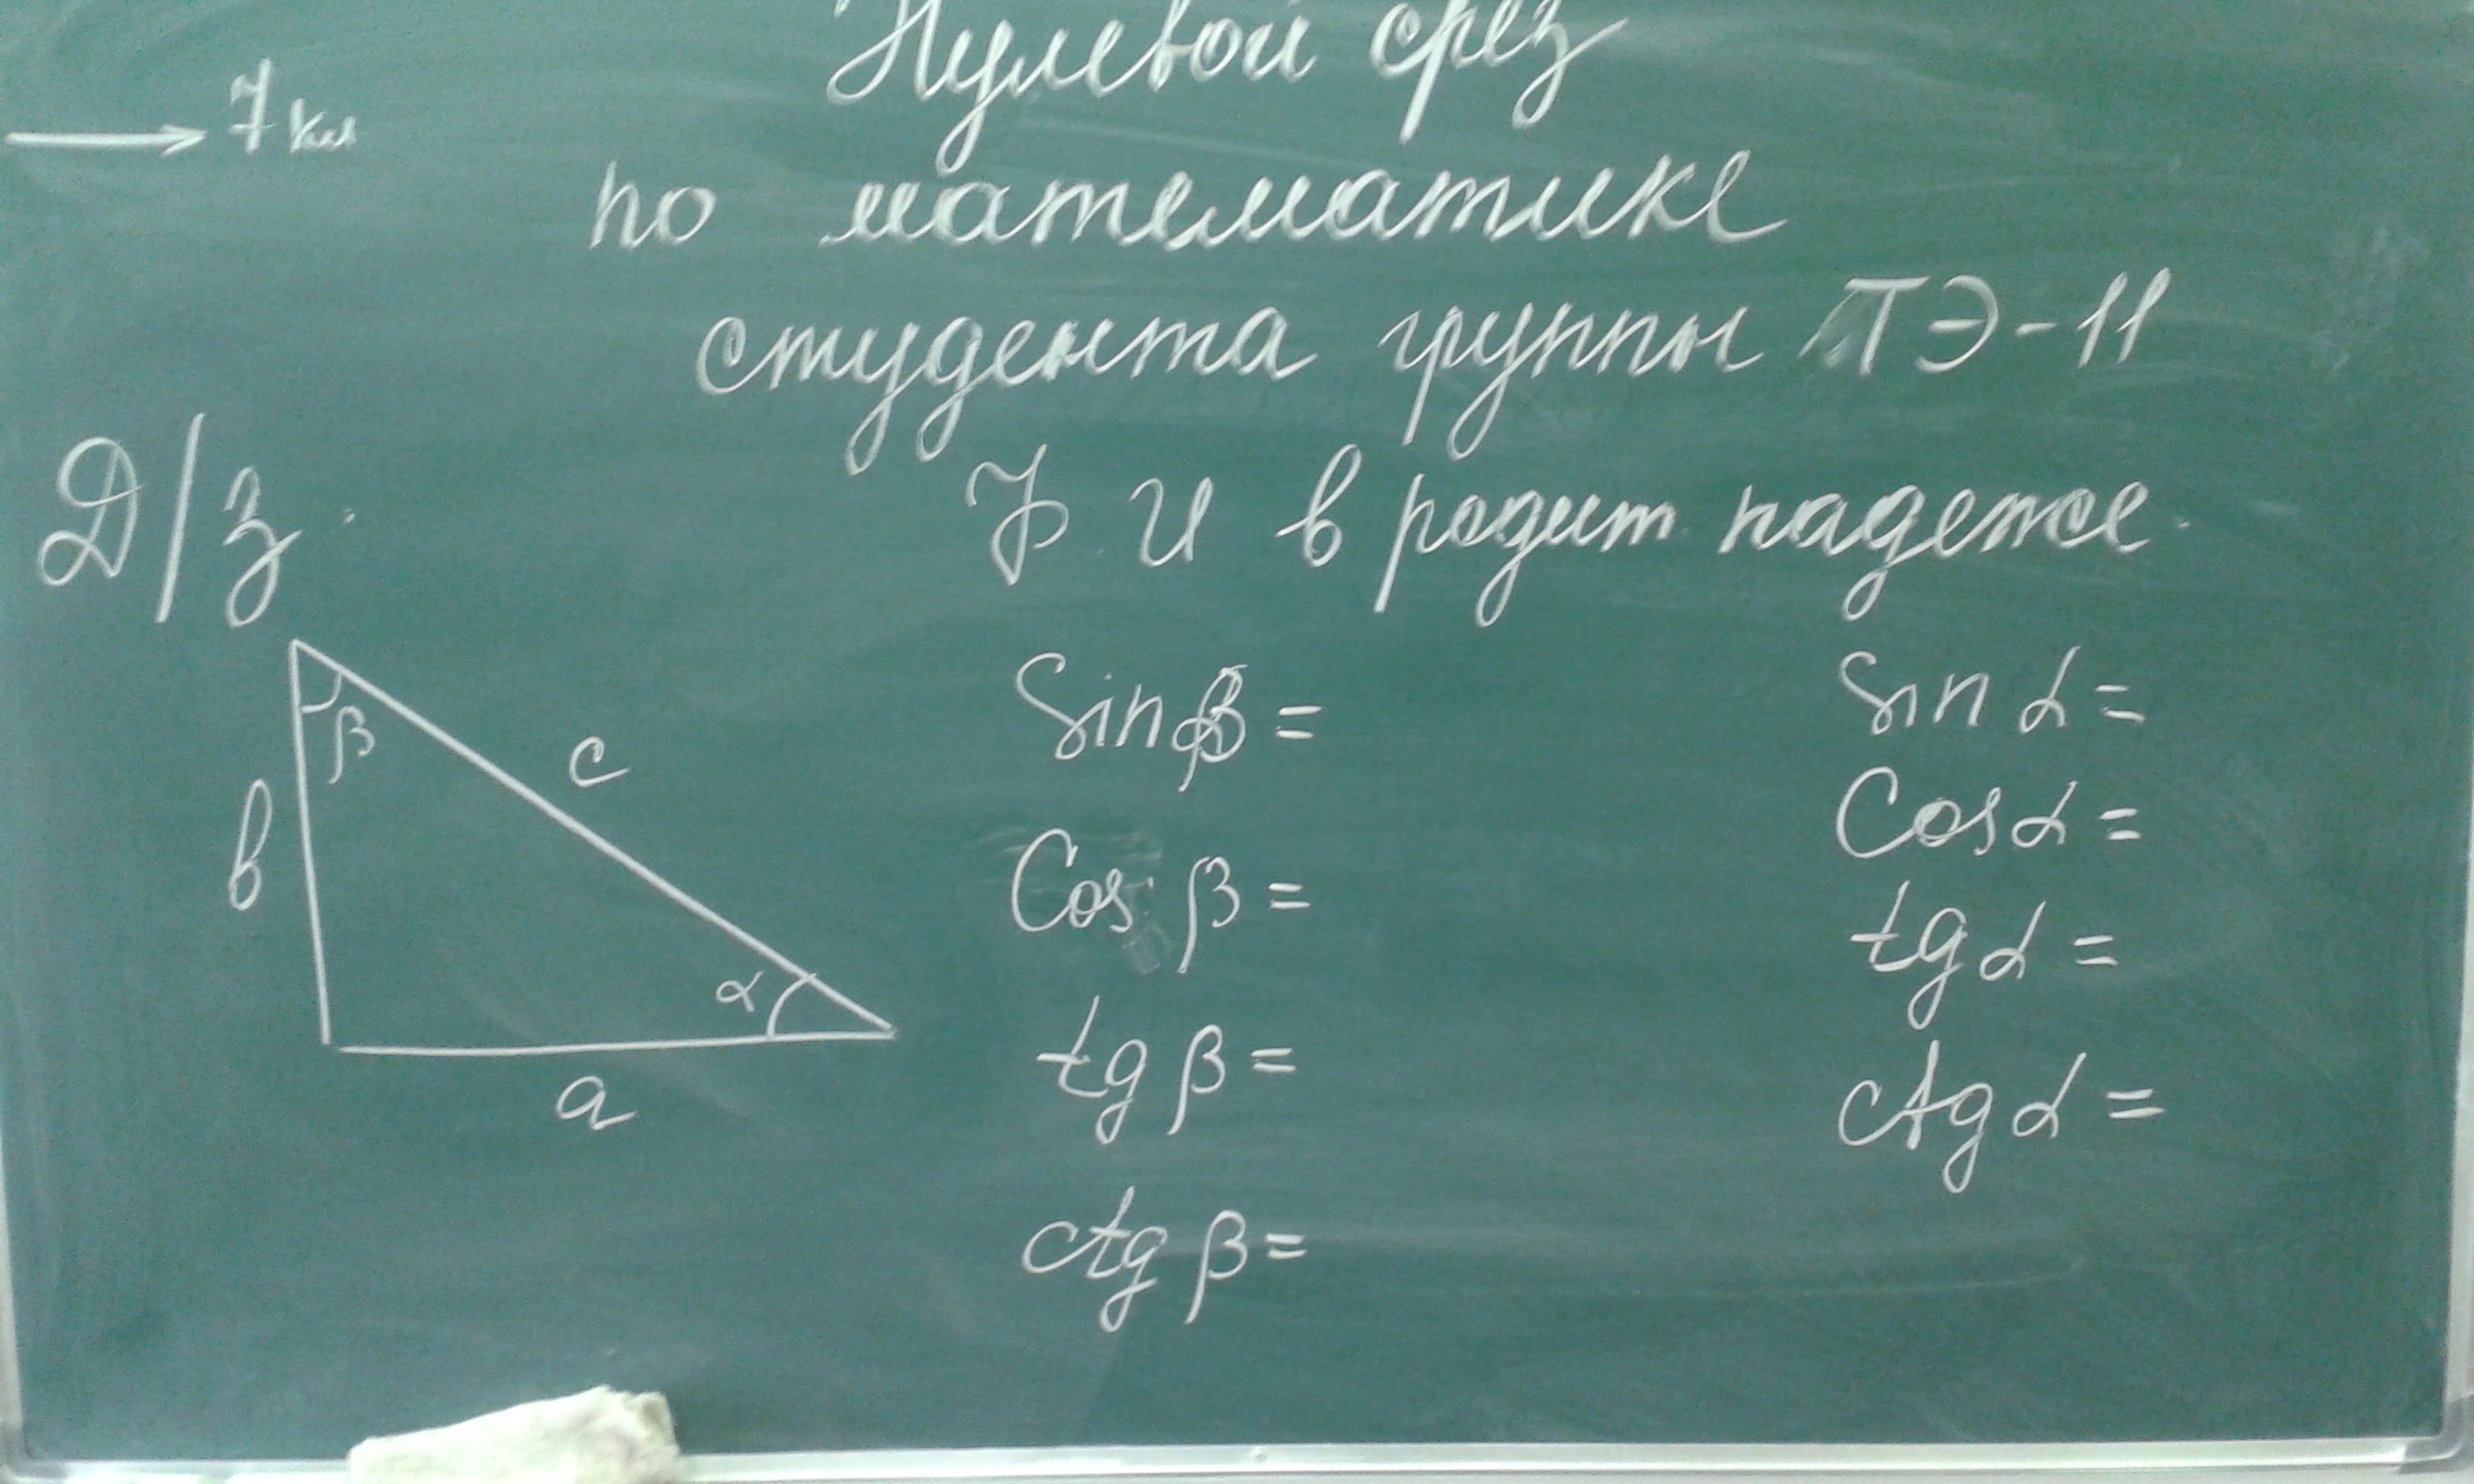 Нулевой срез
→ 7 кл
по математике
студента группы ТЭ-11
Ф. И в родит. падеже.
Д/з.
β
c
в
α
a
Sin β =
Cos β =
tg β =
ctg β =
Sin α =
Cos α =
tg α =
ctg α =